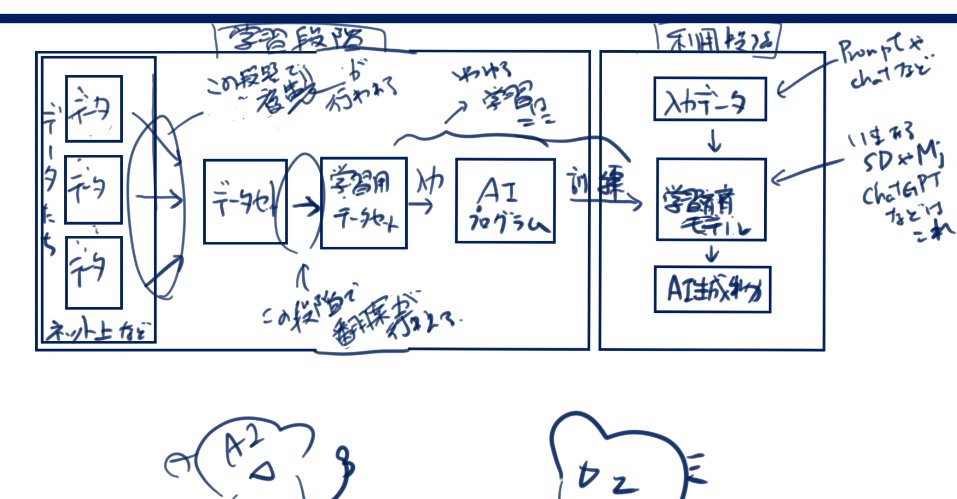 学習段階
利用段階
データ
データ
データ
データたち
ネット上など
この段階で
複製が
行われる
データセット
学習用
データセット
この段階で
翻案が
行われる
入力
いわゆる
学習は
ここ
AI
プログラム
訓練
入力データ
学習済
モデル
AI生成物
Promptや
chatなど
いまある
SDやMj
ChatGPT
などは
これ
AI